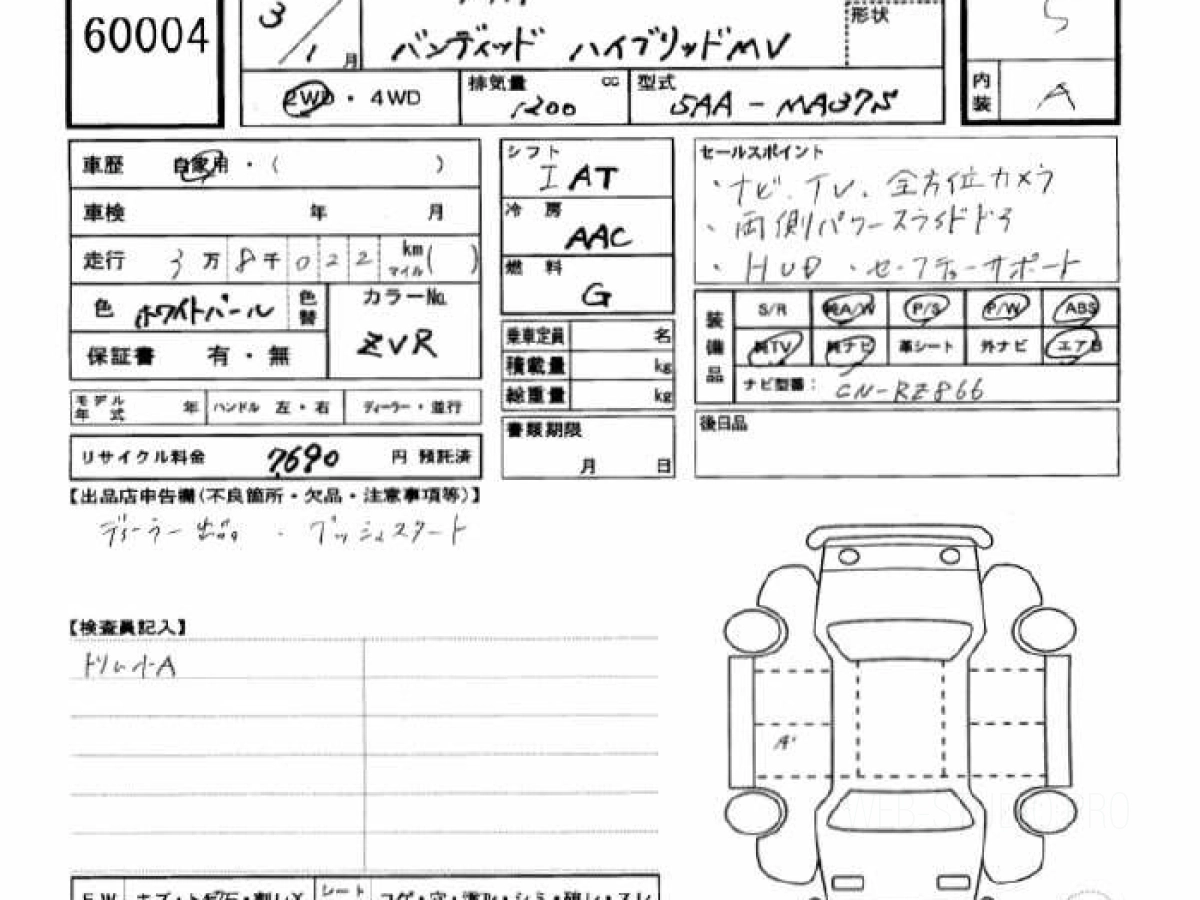 60004
3/1月
形状
バンディット ハイブリッドMV
2WD・4WD
排気量 cc 1200
型式 5AA-MA37S
内装 A
車歴 自家用・( )
車検 年 月
走行 3万8千022 km マイル( )
色 ホワイトパール 色替
カラーNo. ZVR
保証書 有・無
モデル年式 年 ハンドル 左・右 ディーラー・並行
リサイクル料金 7690 円 預託済
シフト I AT
冷房 AAC
燃料 G
乗車定員 名
積載量 kg
総重量 kg
書類期限
月 日
セールスポイント
・ナビ、TV、全方位カメラ
・両側パワースライドドア
・HUD ・セーフティーサポート
装備品
S/R 純A/W P/S P/W ABS
純TV 純ナビ 革シート 外ナビ エアB
ナビ型番: CN-RZ866
後日品
【出品店申告欄(不良箇所・欠品・注意事項等)】
ディーラー出品 ・プッシュスタート
【検査員記入】
トリム小A
A'
シート コゲ・穴・